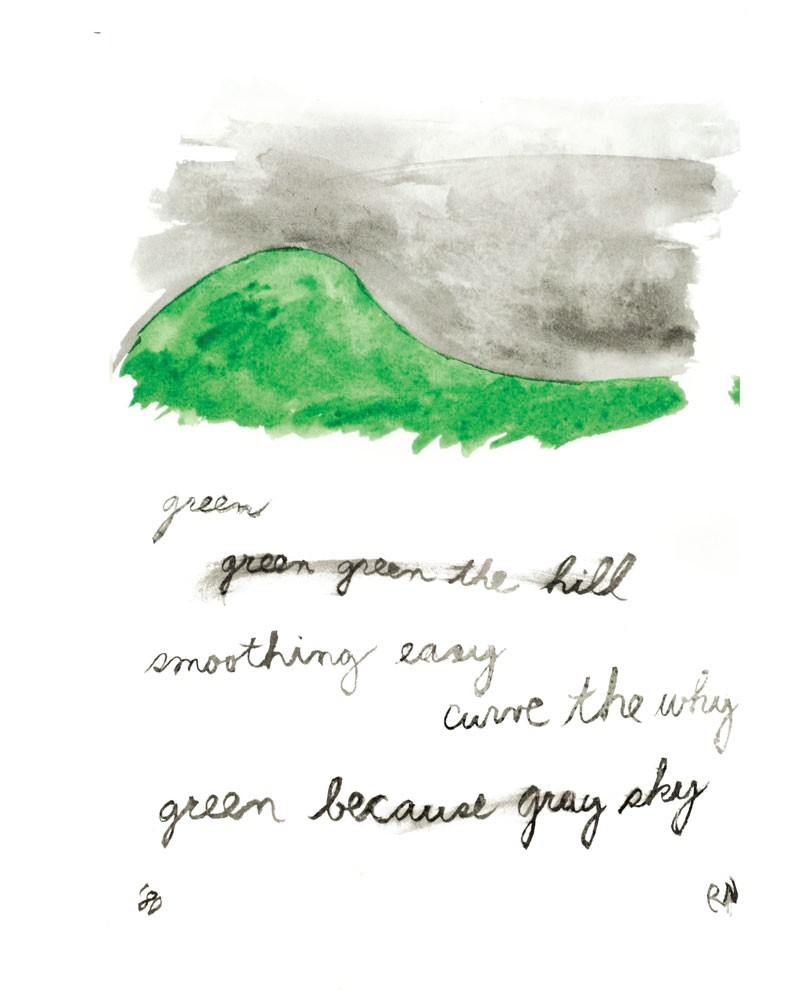 green
green green the hill
smoothing easy
curve the why
green because gray sky
'80 RN